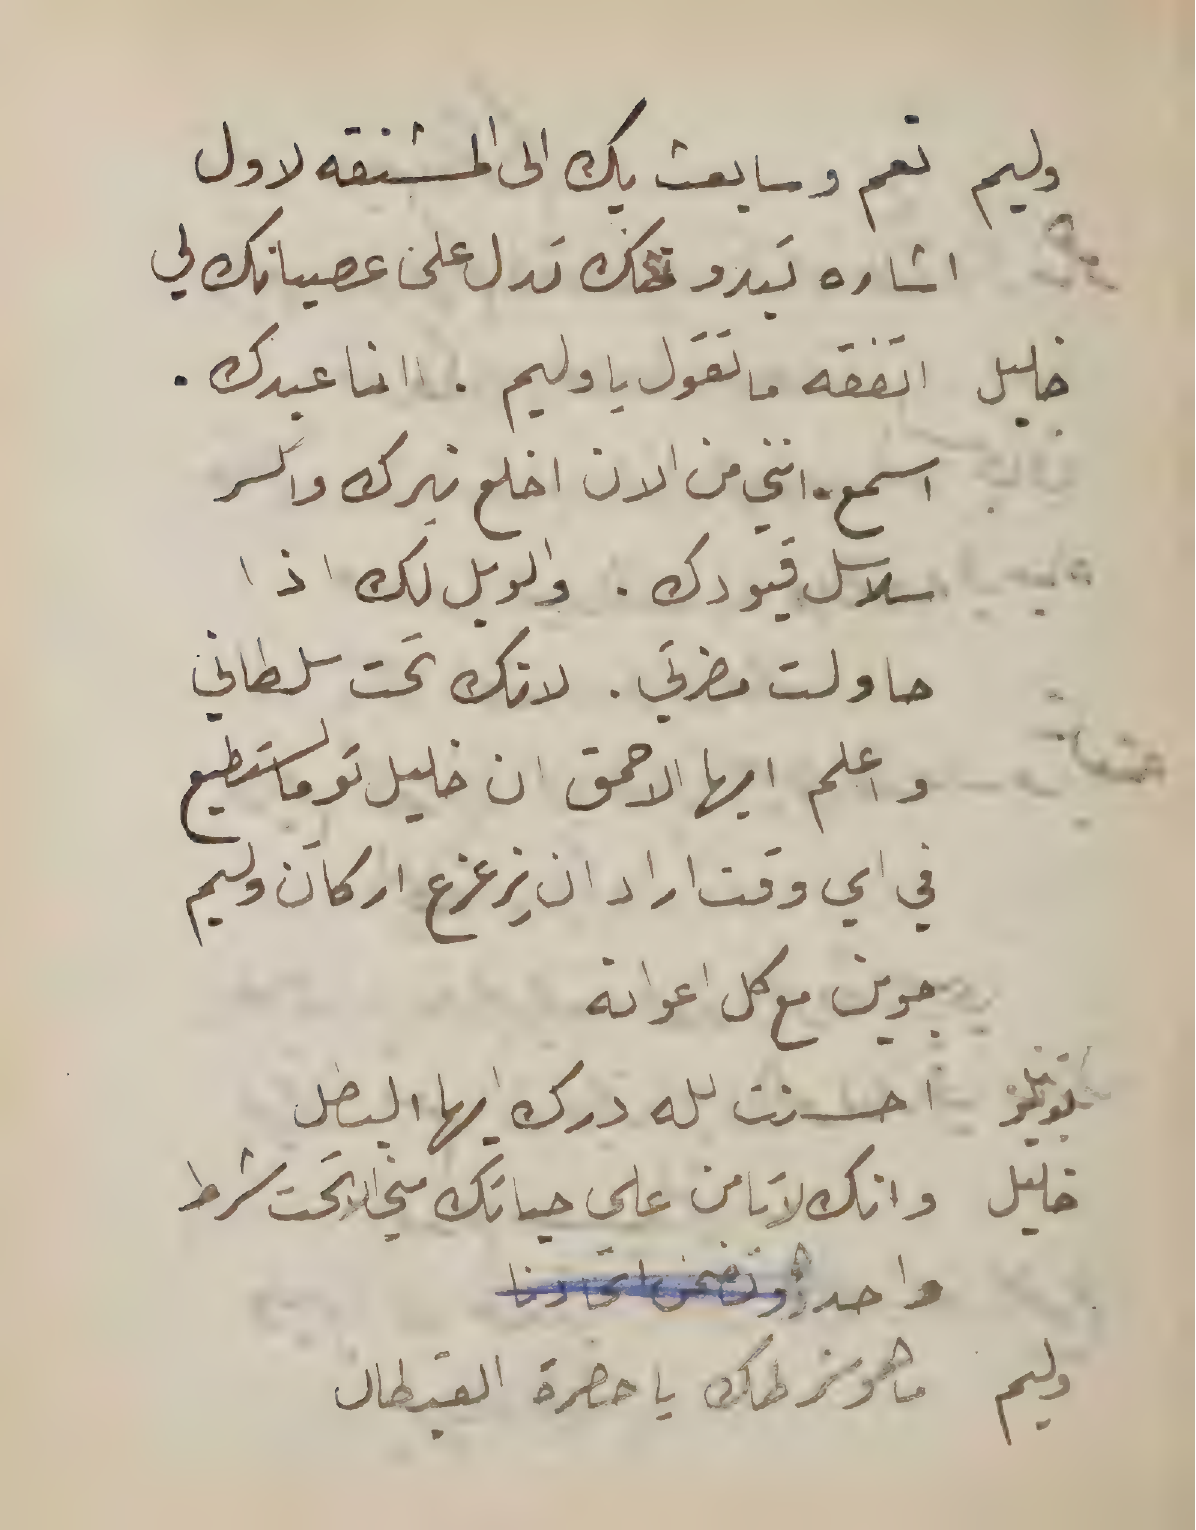 وليم نعم وسابعث بك الى المشنقه لاول
اشاره تبدو منك تدل على عصيانك لي
خليل اتفقه ما تقول يا وليم . اانا عبدك .
اسمع . انني من الان اخلع نيرك واكسر
سلاسل قيودك . والويل لك اذا
حاولت مضرتي . لانك تحت سلطاني
واعلم ايها الاحمق ان خليل يستطيع
في اي وقت اراد ان يزعزع اركان وليم
جوين مع كل اعوانه
احسنت لله درك ايها البطل
خليل وانك لا تامن على حياتك مني الا تحت شرط
واحد
وليم ما هو شرطك يا حضرة القبطان